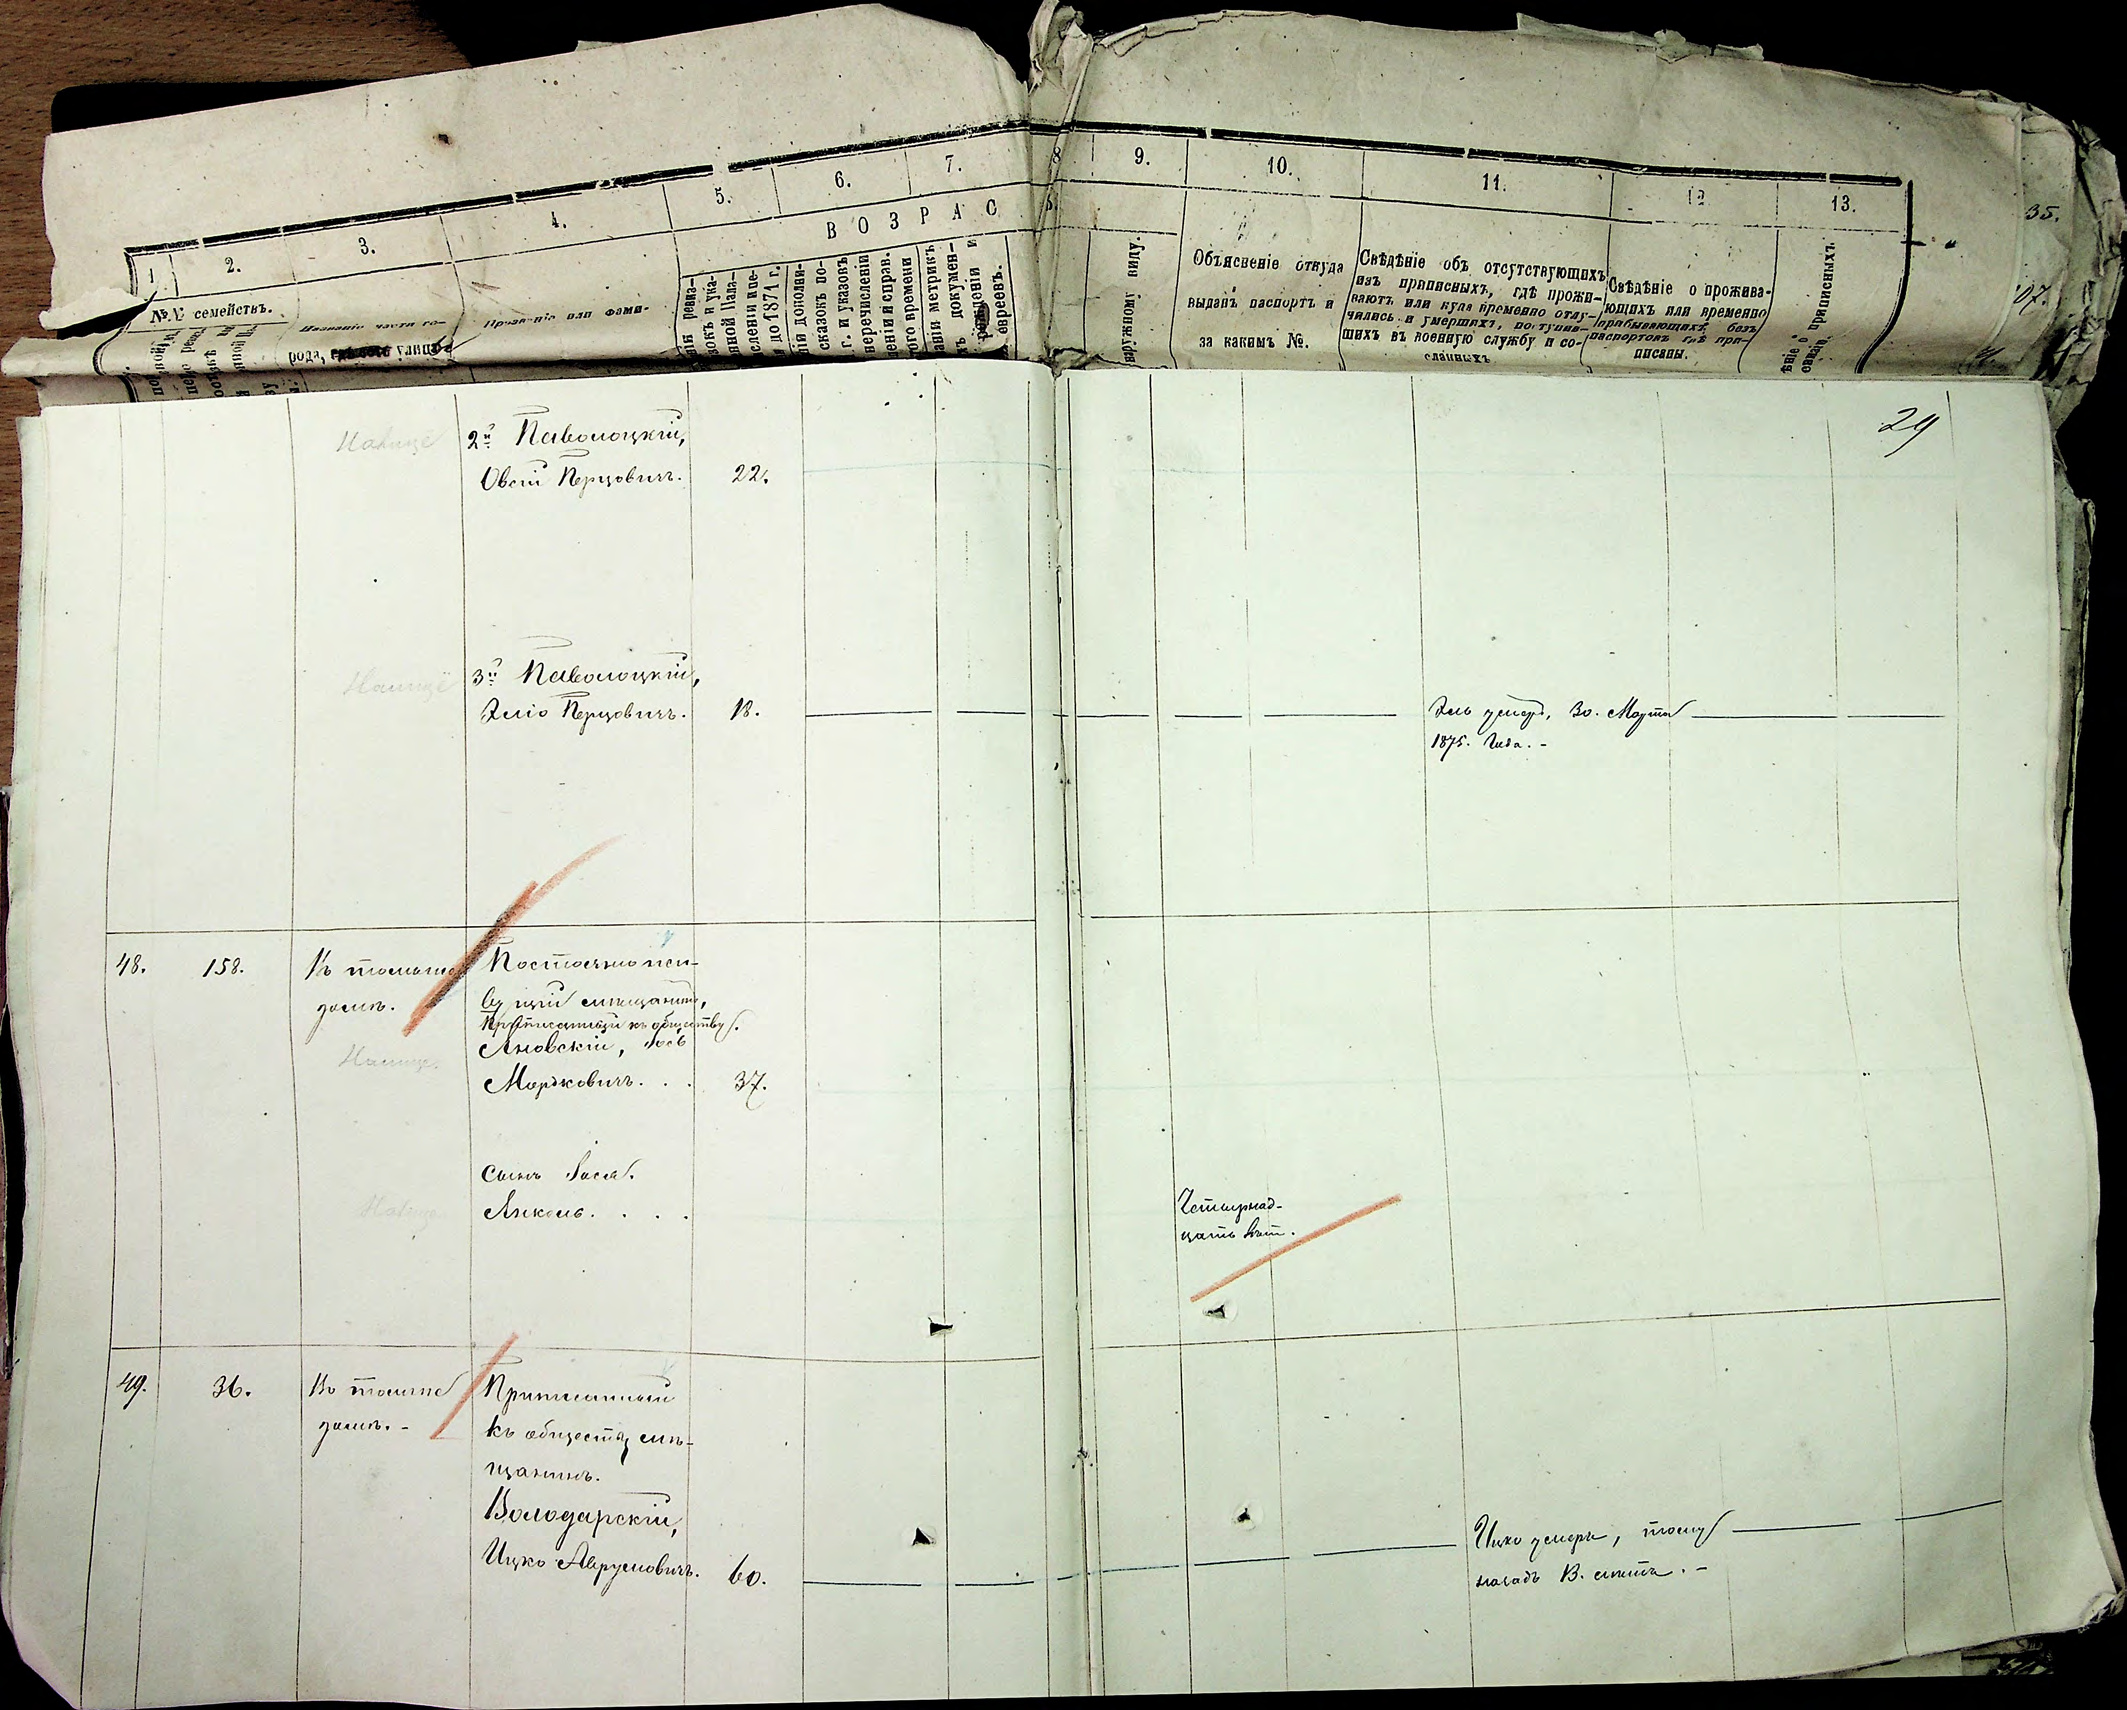 1. 2. 3. 4. 5. 6. 7. 8 9. 10. 11. 12 13.
35.
ВОЗРАСТЪ
№№ семействъ.
Названіе части го-
рода, улицы
Прозваніе или фами-
до 1871 г.
сказокъ по-
г. и указовъ
перечисленіи
леніи и справ.
того времени
метрикъ
докумен-
рожденіи и
евреевъ.
наружному виду.
Объясненіе откуда
выданъ паспортъ и
за какимъ №.
Свѣдѣніе объ отсутствующихъ
изъ приписныхъ, гдѣ прожи-
ваютъ или куда временно отлу-
чались и умершихъ, поступив-
шихъ въ военную службу и со-
сланныхъ
Свѣдѣніе о прожива-
ющихъ или временно
пребывающихъ, безъ
паспортовъ гдѣ при-
писаны.
приписныхъ
07.
29
Налице
2й Паволоцкій,
Овсій Перцовичъ. 22.
Налице
3й Паволоцкій,
Элio Перцовичъ. 18.
Эль умеръ, 30. Марта
1875. Года. -
48. 158. Въ томъ же
домѣ.
Налице.
Постоянно жи-
вущій мѣщанинъ,
Приписанный къ обществу.
Яновскій, Іосъ
Мордковичъ. . . 37.
сынъ Іося.
Янкель. . . .
Налице
Четырнад-
цать лѣт.
49. 36. Въ томъ же
домѣ. -
Приписанный
къ обществу мѣ-
щанинъ.
Володарскій,
Ицко Аврумовичъ. 60.
Ицко умеръ, тому
назадъ 13. лѣтъ. -